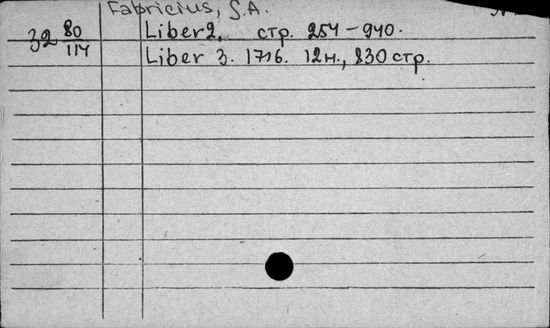 Fabricius, J.A.
32 80/114 Liber 2. стр. 254-940.
Liber 3. 1716. 12н., 830 стр.